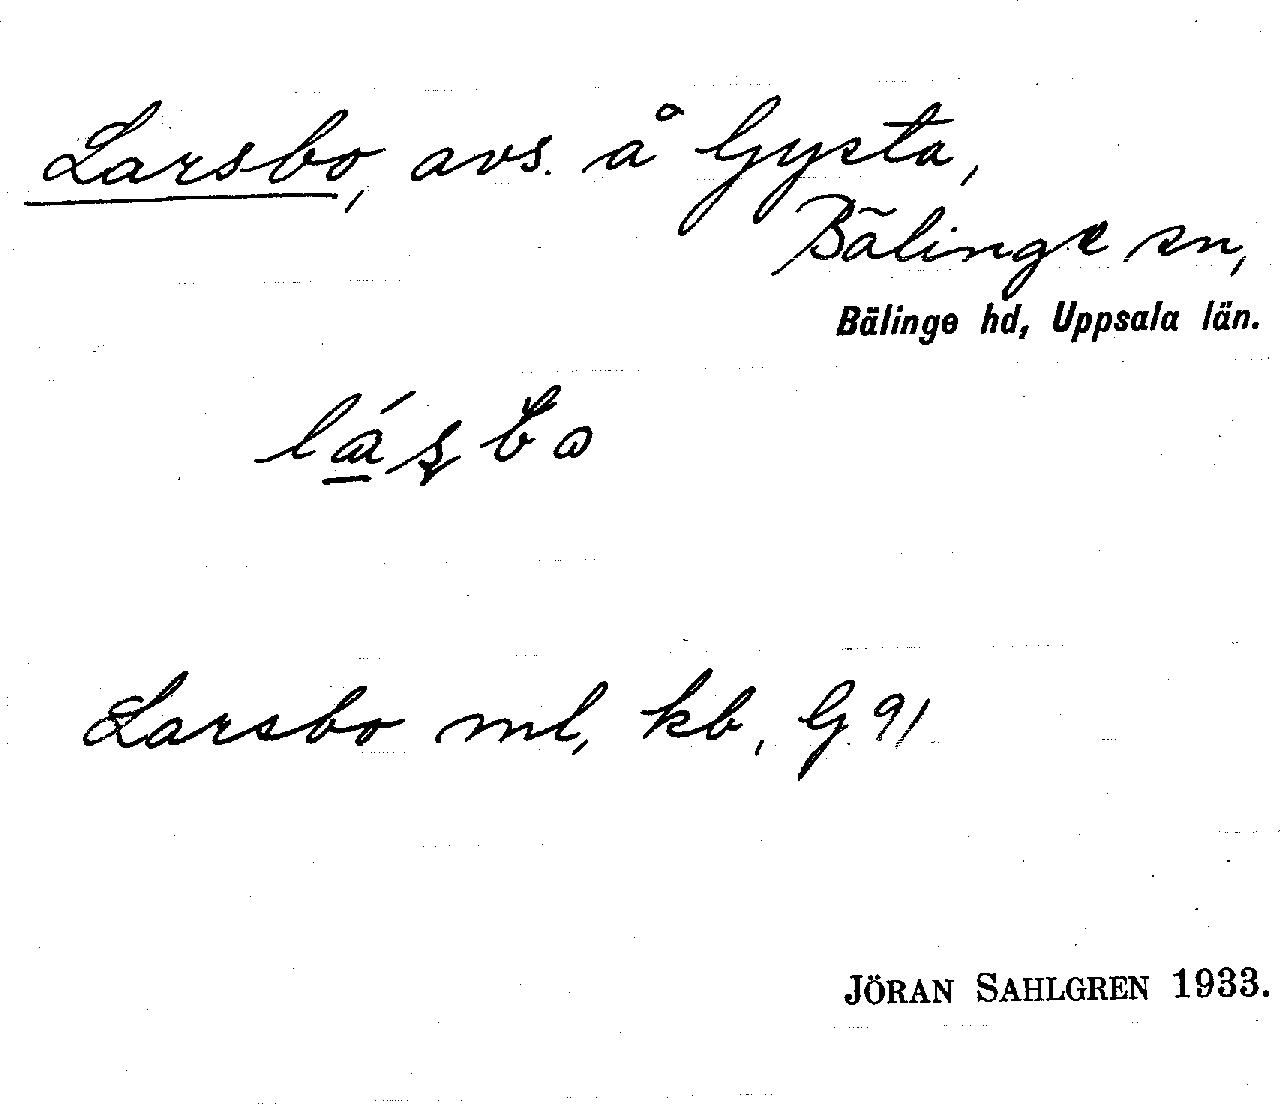 Larsbo, avs. å Gysta,
Bälinge sn,
Bälinge hd, Uppsala län.
Larsbo ml, kb, G 91
JÖRAN SAHLGREN 1933.